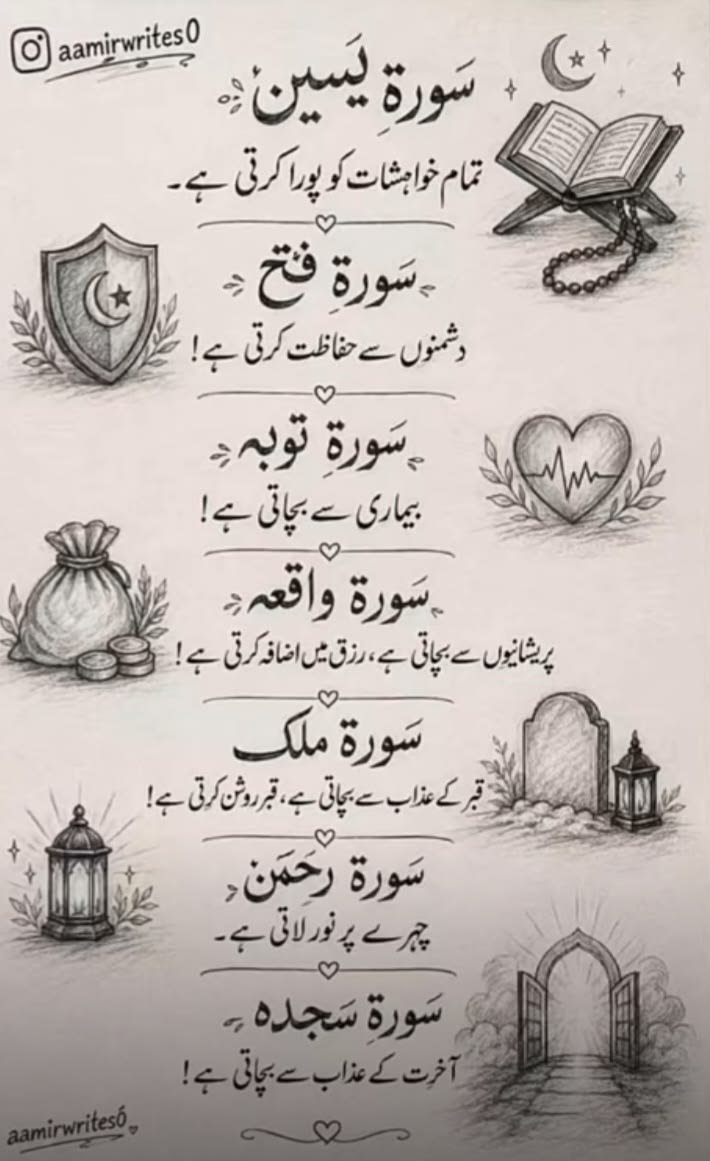 aamirwrites0
سَورۃِ یَسین
تمام خواہشات کو پورا کرتی ہے۔
سَورۃِ فتح
دشمنوں سے حفاظت کرتی ہے!
سَورۃِ توبہ
بیماری سے بچاتی ہے!
سَورۃ واقعہ
پریشانیوں سے بچاتی ہے، رزق میں اضافہ کرتی ہے!
سَورۃ ملک
قبر کے عذاب سے بچاتی ہے، قبر روشن کرتی ہے!
سَورۃ رحَمَن
چہرے پر نور لاتی ہے۔
سَورۃِ سَجدہ
آخرت کے عذاب سے بچاتی ہے!
aamirwrites0